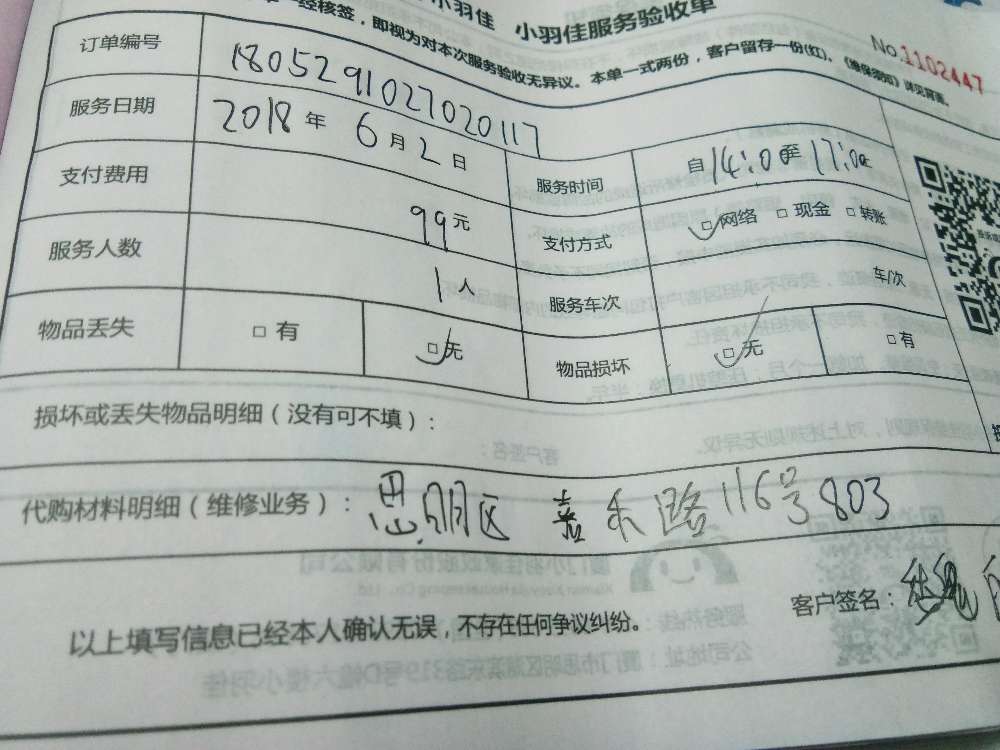 小羽佳 小羽佳服务验收单
一经核签，即视为对本次服务验收无异议。本单一式两份，客户留存一份(红)、《维保须知》详见背面。
No.1102447
订单编号 1805291027020117
服务日期 2018年6月2日 服务时间 自14:00至17:00止
支付费用 99元 支付方式 □网络 □现金 □转账
服务人数 1人 服务车次 车/次
物品丢失 □有 □无 物品损坏 □无 □有
损坏或丢失物品明细（没有可不填）：
代购材料明细（维修业务）：思明区 嘉禾路116号803
以上填写信息已经本人确认无误，不存在任何争议纠纷。 客户签名：